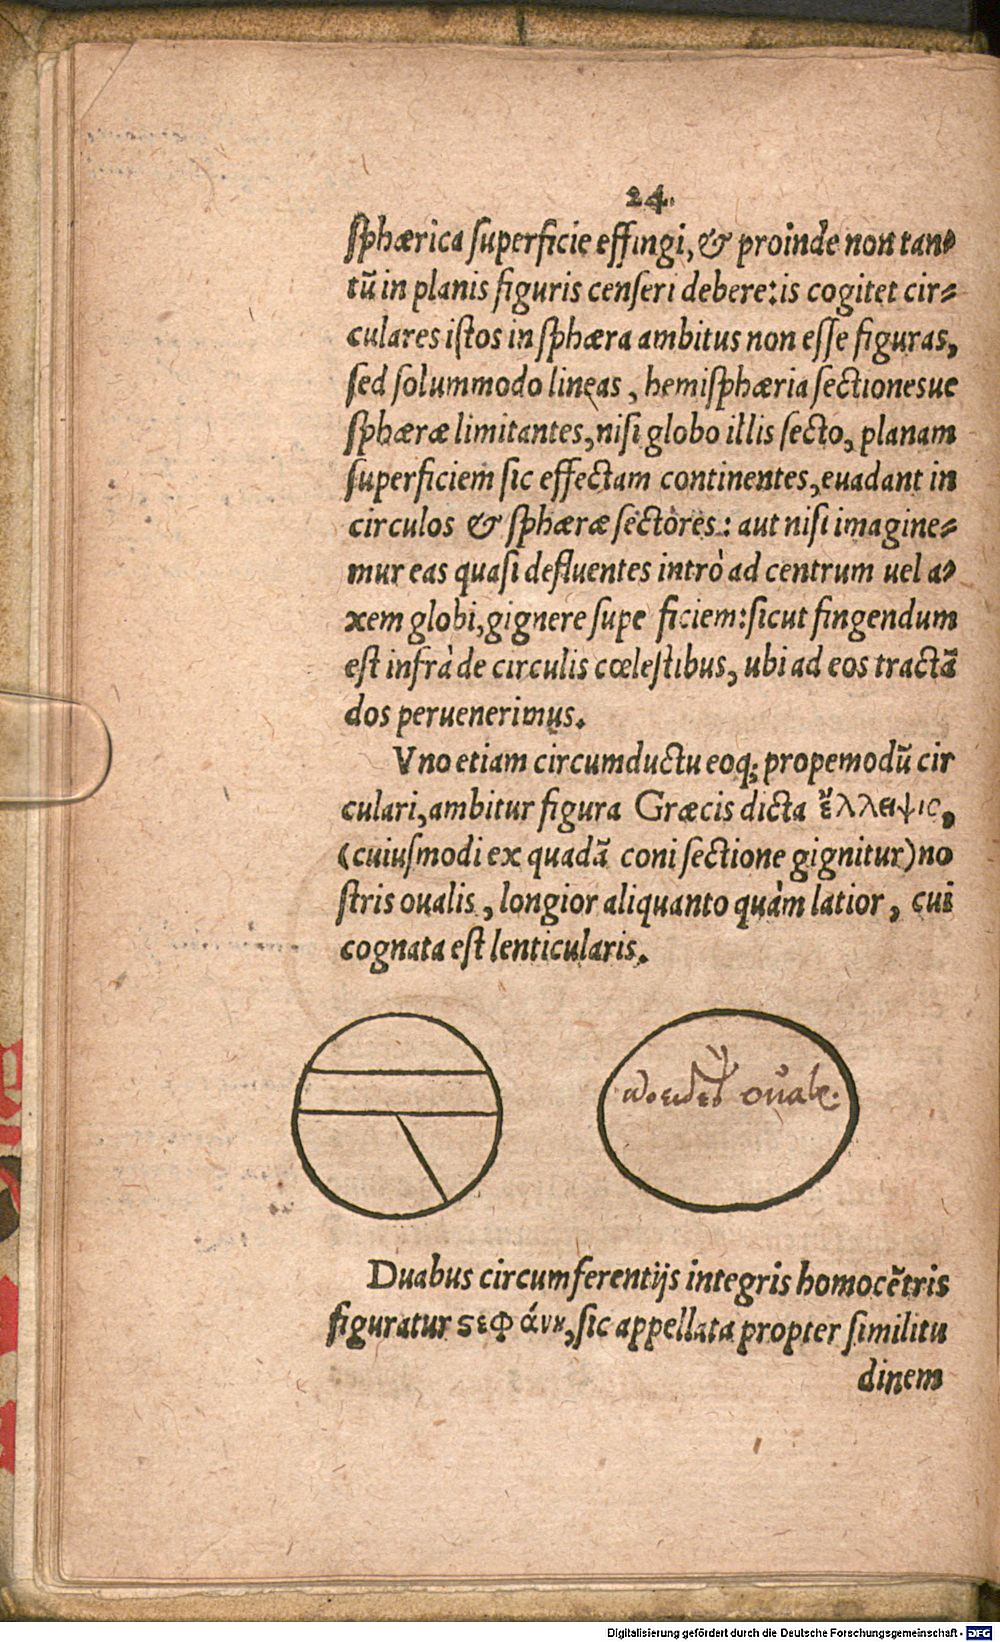 24.
sphærica superficie effingi, & proinde non tan⸗
tũ in planis figuris censeri debere: is cogitet cir⸗
culares istos in sphæra ambitus non esse figuras,
sed solummodo lineas, hemisphæria sectionesue
sphæræ limitantes, nisi globo illis secto, planam
superficiem sic effectam continentes, euadant in
circulos & sphæræ sectores: aut nisi imagine⸗
mur eas quasi defluentes intrò ad centrum uel a⸗
xem globi, gignere supe ficiem: sicut fingendum
est infrà de circulis cœlestibus, ubi ad eos tractã
dos peruenerimus.
Vno etiam circumductu eoq; propemodũ cir
culari, ambitur figura Græcis dicta ἔλλειψις,
(cuiusmodi ex quadã coni sectione gignitur) no
stris oualis, longior aliquanto quàm latior, cui
cognata est lenticularis.
ωοειδες ouale.
Duabus circumferentijs integris homocẽtris
figuratur ϛεφάνη, sic appellata propter similitu
dinem
Digitalisierung gefördert durch die Deutsche Forschungsgemeinschaft - DFG